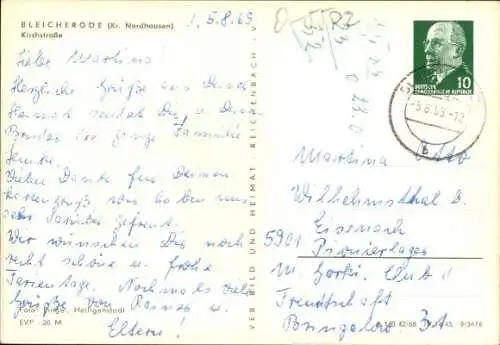 BLEICHERODE (Kr. Nordhausen)
Kirchstraße
1,5.8.69
Liebe Martina!
Herzliche Grüße aus Deiner
Heimat sendet Dir u. Deinem
Bruder die ganze Familie
Vielen Dank für Deinen
Kartengruß, wir haben uns
sehr darüber gefreut.
Wir wünschen Dir noch
recht schöne u. frohe
Ferientage. Nochmals viele
Grüße von
Eltern!
Foto: Heiligenstadt
EVP -,20 M
VEB BILD UND HEIMAT, REICHENBACH i. V.
10
DEUTSCHE
DEMOKRATISCHE REPUBLIK
-5.8.69.-12
b
Martina Otto
Wilhelmsthal b.
Eisenach
5901 Pionierlager
M. Gorki, Club d
Freundschaft
Bungalow 31